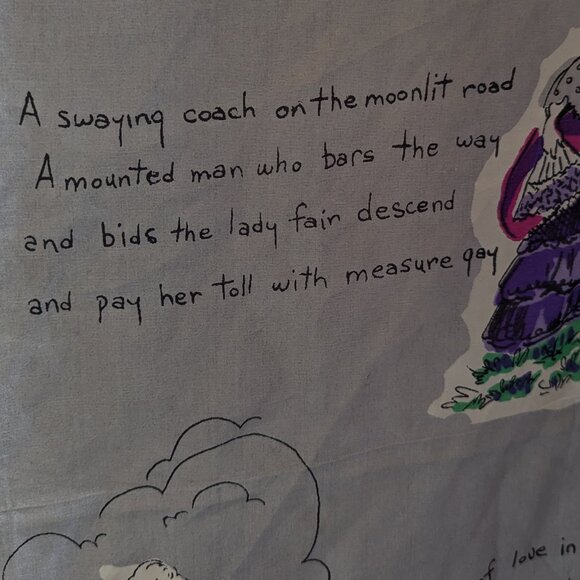 A swaying coach on the moonlit road
A mounted man who bars the way
and bids the lady fair descend
and pay her toll with measure gay
f love in